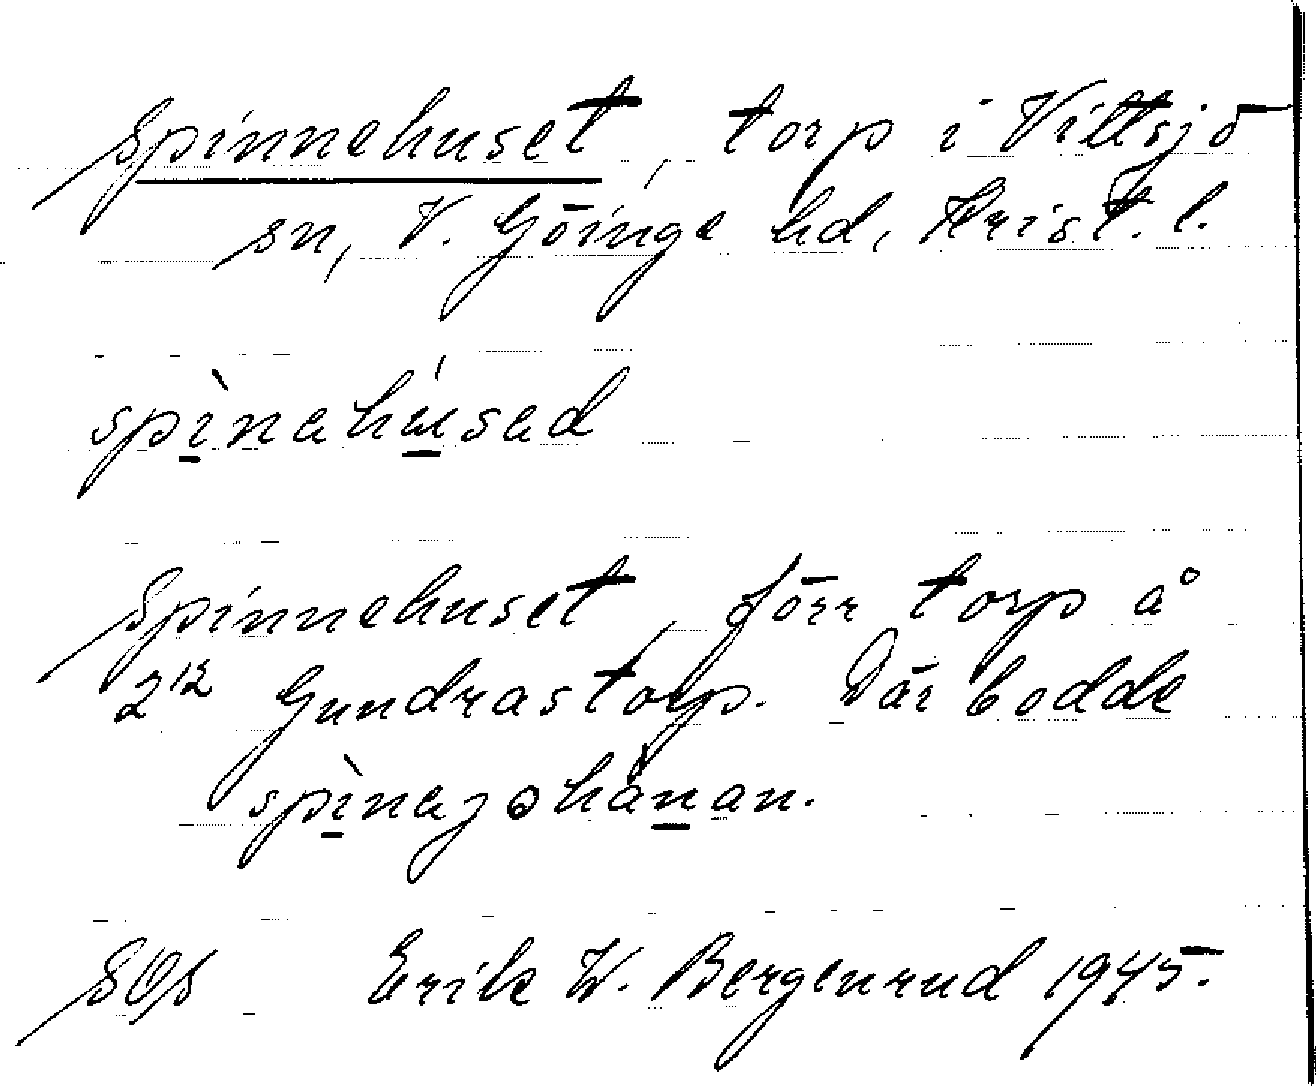 Spinnehuset, torp i Vittsjö
sn, V. Göinge hd, Krist. l.
spìnahúsad
Spinnehuset, förr torp å
2¹² Gundrastorp. Där bodde
spìnajohánan.
Erik W. Bergenrud 1945.